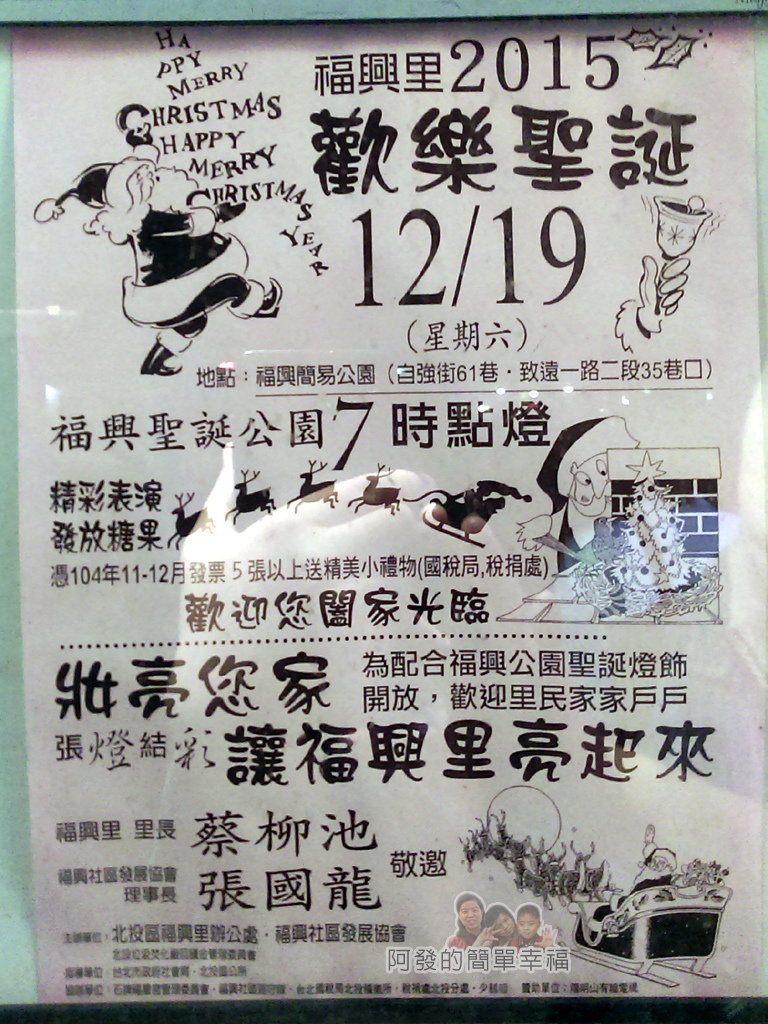 HA
PPY
MERRY
CHRISTMAS
HAPPY
MERRY
CHRISTMAS
YEAR
福興里2015
歡樂聖誕
12/19
(星期六)
地點：福興簡易公園(自強街61巷・致遠一路二段35巷口)
福興聖誕公園7時點燈
精彩表演
發放糖果
憑104年11-12月發票5張以上送精美小禮物(國稅局,稅捐處)
歡迎您闔家光臨
妝亮您家
為配合福興公園聖誕燈飾
開放，歡迎里民家家戶戶
張燈結彩 讓福興里亮起來
福興里 里長 蔡柳池
福興社區發展協會
理事長 張國龍
敬邀
主辦單位：北投區福興里辦公處・福興社區發展協會
北投垃圾焚化廠回饋金管理委員會
指導單位：台北市政府社會局・北投區公所
協辦單位：石牌福星宮管理委員會・福興社區
贊助單位：陽明山有線電視
阿發的簡單幸福